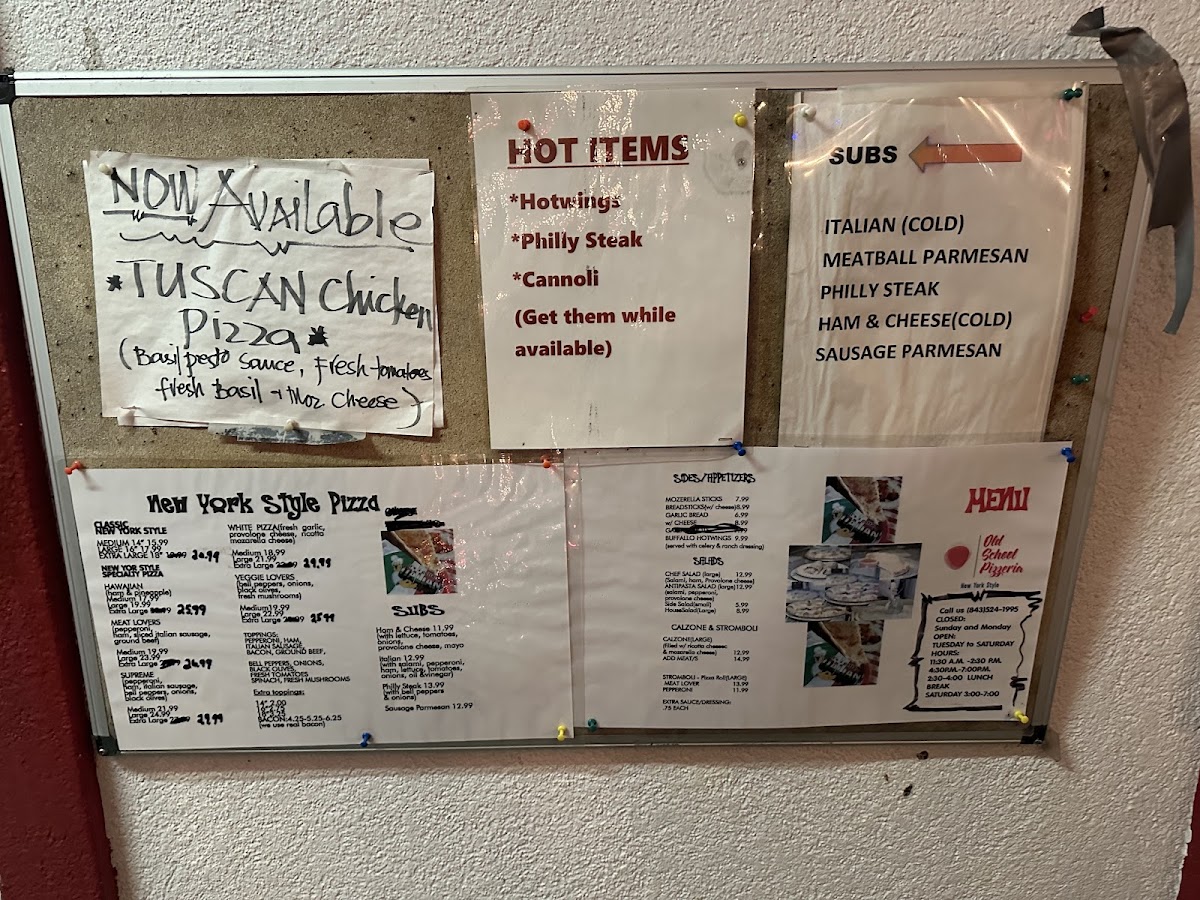 NOW Available
*TUSCAN Chicken
Pizza*
(Basil pesto sauce, Fresh tomatoes
fresh Basil + Moz Cheese)
HOT ITEMS
*Hotwings
*Philly Steak
*Cannoli
(Get them while
available)
SUBS
ITALIAN (COLD)
MEATBALL PARMESAN
PHILLY STEAK
HAM & CHEESE(COLD)
SAUSAGE PARMESAN
New York Style Pizza
CLASSIC
NEW YORK STYLE
MEDIUM 14" 15.99
LARGE 16" 17.99
EXTRA LARGE 18" 24.99
NEW YOR STYLE
SPECIALTY PIZZA
HAWAIIAN
(ham & pineapple)
Medium 17.99
Large 19.99
Extra Large 25.99
MEAT LOVERS
(pepperoni,
ham, sliced italian sausage,
ground beef)
Medium 19.99
Large 23.99
Extra Large 26.99
SUPREME
(pepperoni,
ham, italian sausage,
bell peppers, onions,
black olives)
Medium 21.99
Large 24.99
Extra Large 29.99
WHITE PIZZA(fresh garlic,
provolone cheese, ricotta
mazarella cheese)
Medium 18.99
Large 21.99
Extra Large 29.99
VEGGIE LOVERS
(bell peppers, onions,
black olives,
fresh mushrooms)
Medium19.99
Large 22.99
Extra Large 25.99
TOPPINGS:
PEPPERONI, HAM,
ITALIAN SAUSAGE,
BACON, GROUND BEEF,
BELL PEPPERS, ONIONS,
BLACK OLIVES,
FRESH TOMATOES
SPINACH, FRESH MUSHROOMS
Extra toppings:
14" 2.00
BACON:4.25-5.25-6.25
(we use real bacon)
SUBS
Ham & Cheese 11.99
(with lettuce, tomatoes,
onions,
provolone cheese, mayo
Italian 12.99
(with salami, pepperoni,
ham, lettuce, tomatoes,
onions, oil &vinegar)
Philly Steak 13.99
(with bell peppers
& onions)
Sausage Parmesan 12.99
SIDES/APPETIZERS
MOZERELLA STICKS 7.99
BREADSTICKS(w/ cheese)8.99
GARLIC BREAD 6.99
w/ CHEESE 8.99
BUFFALLO HOTWINGS 9.99
(served with celery & ranch dressing)
SALADS
CHEF SALAD (large) 12.99
(Salami, ham, Provolone cheese)
ANTIPASTA SALAD (large)12.99
(salami, pepperoni,
provolone cheese)
Side Salad(small) 5.99
HouseSalad(Large) 8.99
CALZONE & STROMBOLI
CALZONE(LARGE)
(filled w/ ricotta cheese
& mozarella cheese) 12.99
ADD MEAT/S 14.99
STROMBOLI - Pizza Roll(LARGE)
MEAT LOVER 13.99
PEPPERONI 11.99
EXTRA SAUCE/DRESSING:
.75 EACH
MENU
Old
School
Pizzeria
New York Style
Call us (843)524-1995
CLOSED:
Sunday and Monday
OPEN:
TUESDAY to SATURDAY
HOURS:
11:30 A.M. -2:30 P.M.
4:30PM.-7:00P.M.
2:30-4:00 LUNCH
BREAK
SATURDAY 3:00-7:00